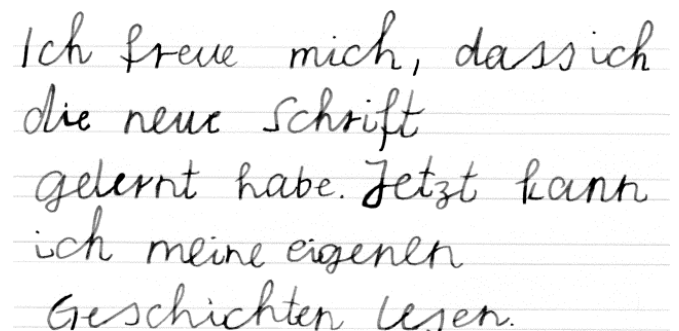 Ich freue mich, dass ich
die neue Schrift
gelernt habe. Jetzt kann
ich meine eigenen
Geschichten lesen.